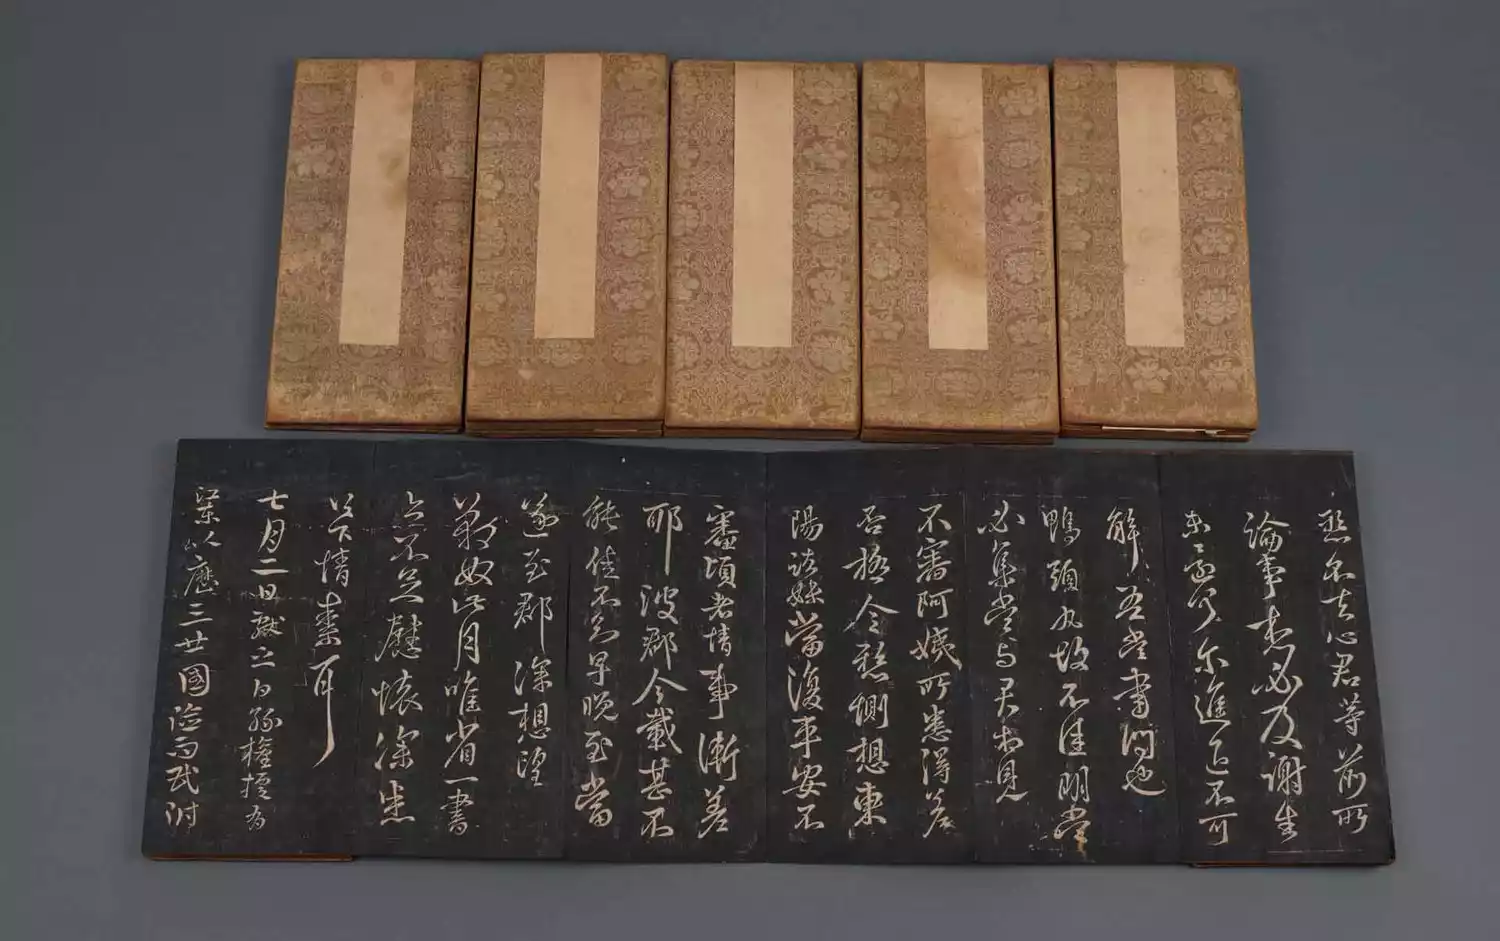 思不可心君等前所
論事想必及謝生
未還何尔進退不可
解吾當書問也
鴨頭丸故不佳明當
必集當與君相見
不審阿姨所患得差
否極令懸惻想東
陽諸妹當復平安不
審頃者情事漸差
耶彼郡今載甚不
能佳不知早晚至當
遂至郡深想望
奴此月唯省一書
亦不足慰懷深悉
以下情素耳
七月二日獻之白孫權據為
江東以歷三世國險而民附